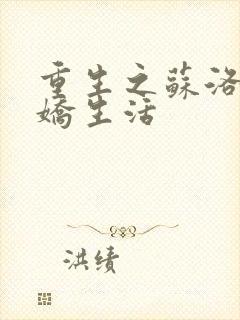 重生之蘇洛
嬌生活
洪绩